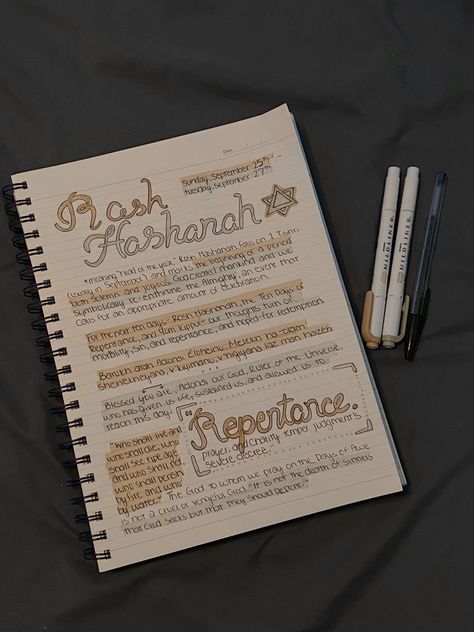 Date
Sunday, September 25th -
Tuesday, September 27th
Rosh
Hashanah
"meaning, "head of the year," Rosh Hashanah falls on 1 Tishri
(usually in September) and marks the beginning of a period
both solemn and joyous. God created mankind and we
symbolically re-enthrone the Almighty, an event that
calls for an appropriate amount of celebration.
For the next ten days - Rosh Hashanah, the Ten Days of
Repentance, and Yom Kippur - our thoughts turn of
mortality, sin, and repentance, and hoped-for redemption.
Barukh atah Adonai Eloheinu Melekh ha-olam
shehekheyanu v'kiyimanu v'migiyanu laz man hazeh
Blessed you are, Adonai our God, Ruler of the Universe,
who has given us life, sustained us, and allowed us to
reach this day.
"Who shall live and
who shall die; who
shall see ripe age
and who shall not;
who shall perish
by fire and who
by water."
"Repentance,
prayer, and charity temper judgment's
severe decree."
The God to whom we pray on the Days of Awe
is not a cruel or vengeful God. "It is not the death of sinners
that God seeks but that they should repent."
MILDLINER
MILDLINER